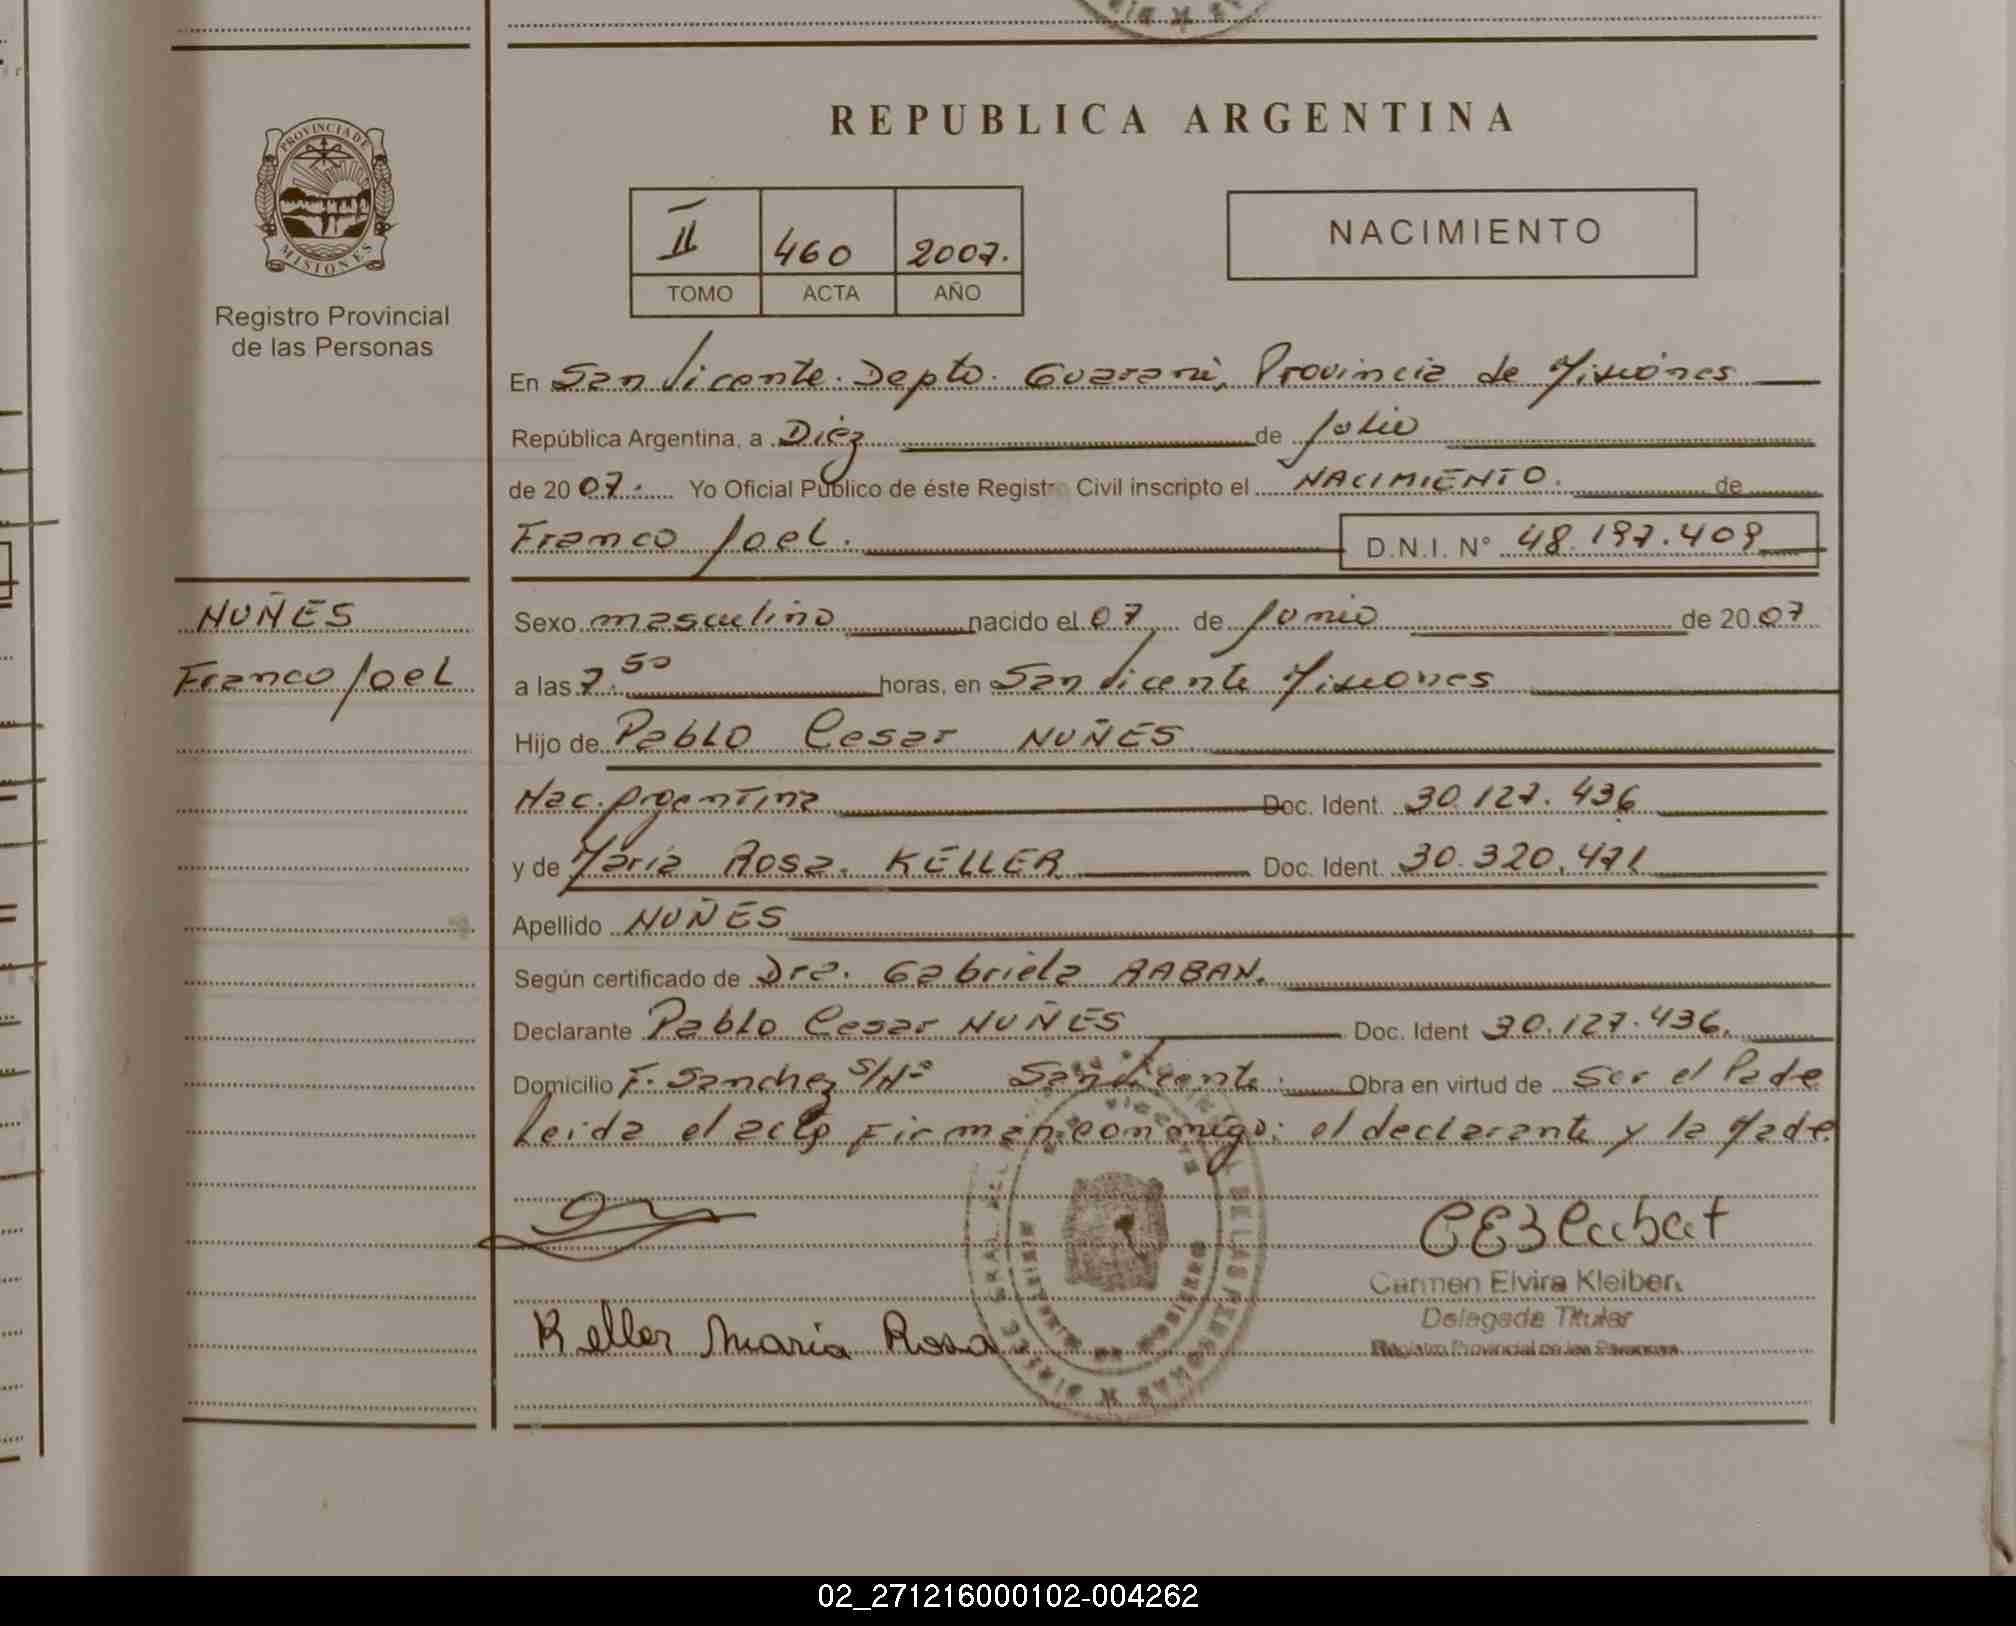 REPUBLICA ARGENTINA
PROVINCIA DE MISIONES
Registro Provincial
de las Personas
II 460 2007.
TOMO ACTA AÑO
NACIMIENTO
En San Vicente. Depto. Guaraní, Provincia de Misiones
República Argentina, a Diez de Julio
de 2007. Yo Oficial Público de éste Registro Civil inscripto el NACIMIENTO. de
Franco Joel. D.N.I. N° 48.197.409
NUÑES
Franco Joel
Sexo masculino nacido el 07 de Junio de 2007
a las 7.50 horas, en San Vicente Misiones
Hijo de Pablo Cesar NUÑES
Nac. Argentina Doc. Ident. 30.127.436
y de María Rosa. KELLER Doc. Ident. 30.320.471
Apellido NUÑES
Según certificado de Dra. Gabriela RABAN.
Declarante Pablo Cesar NUÑES Doc. Ident 30.127.436.
Domicilio F. Sanchez S/Nº San Vicente. Obra en virtud de Ser el Padre
Leida el acta Firman conmigo: el declarante y la Madre.
Keller Maria Rosa
Carmen Elvira Kleiber
Delegada Titular
Registro Provincial de las Personas
02_271216000102-004262